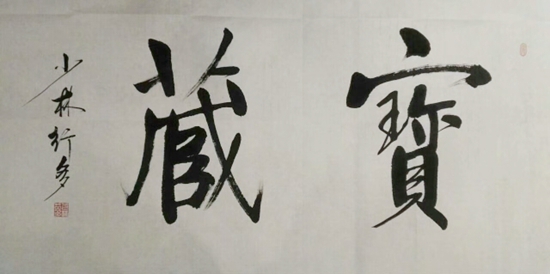 寶藏
少林行多